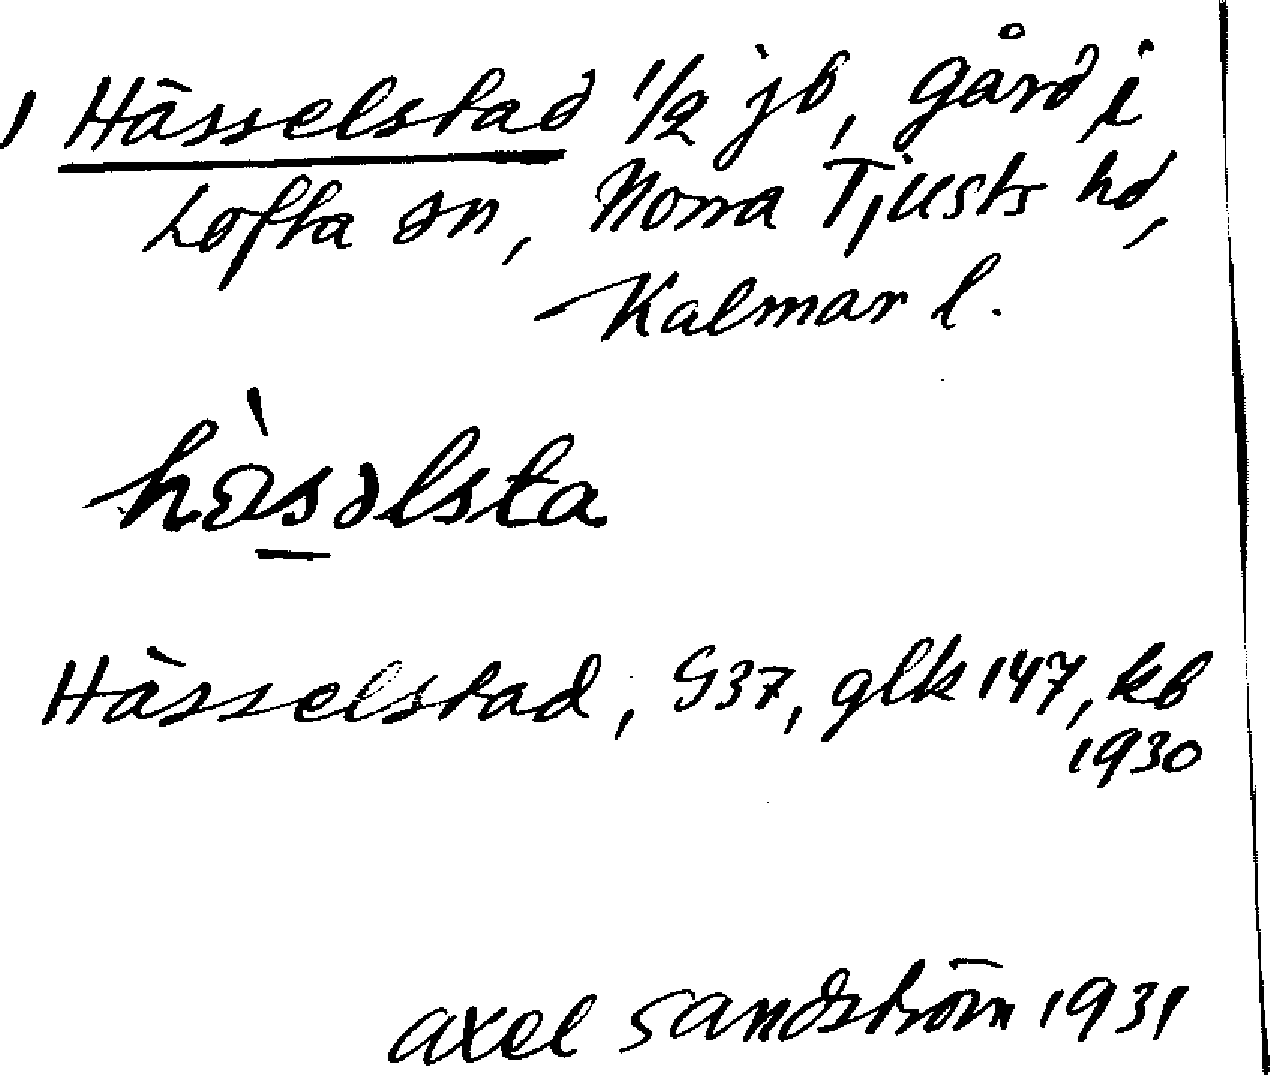 1 Hässelstad 1/2 jb, gård i
Lofta sn, Norra Tjusts hd,
Kalmar l.
hàsəlsta
Hässelstad, G37, glk 147, kb
1930
Axel Sandström 1931